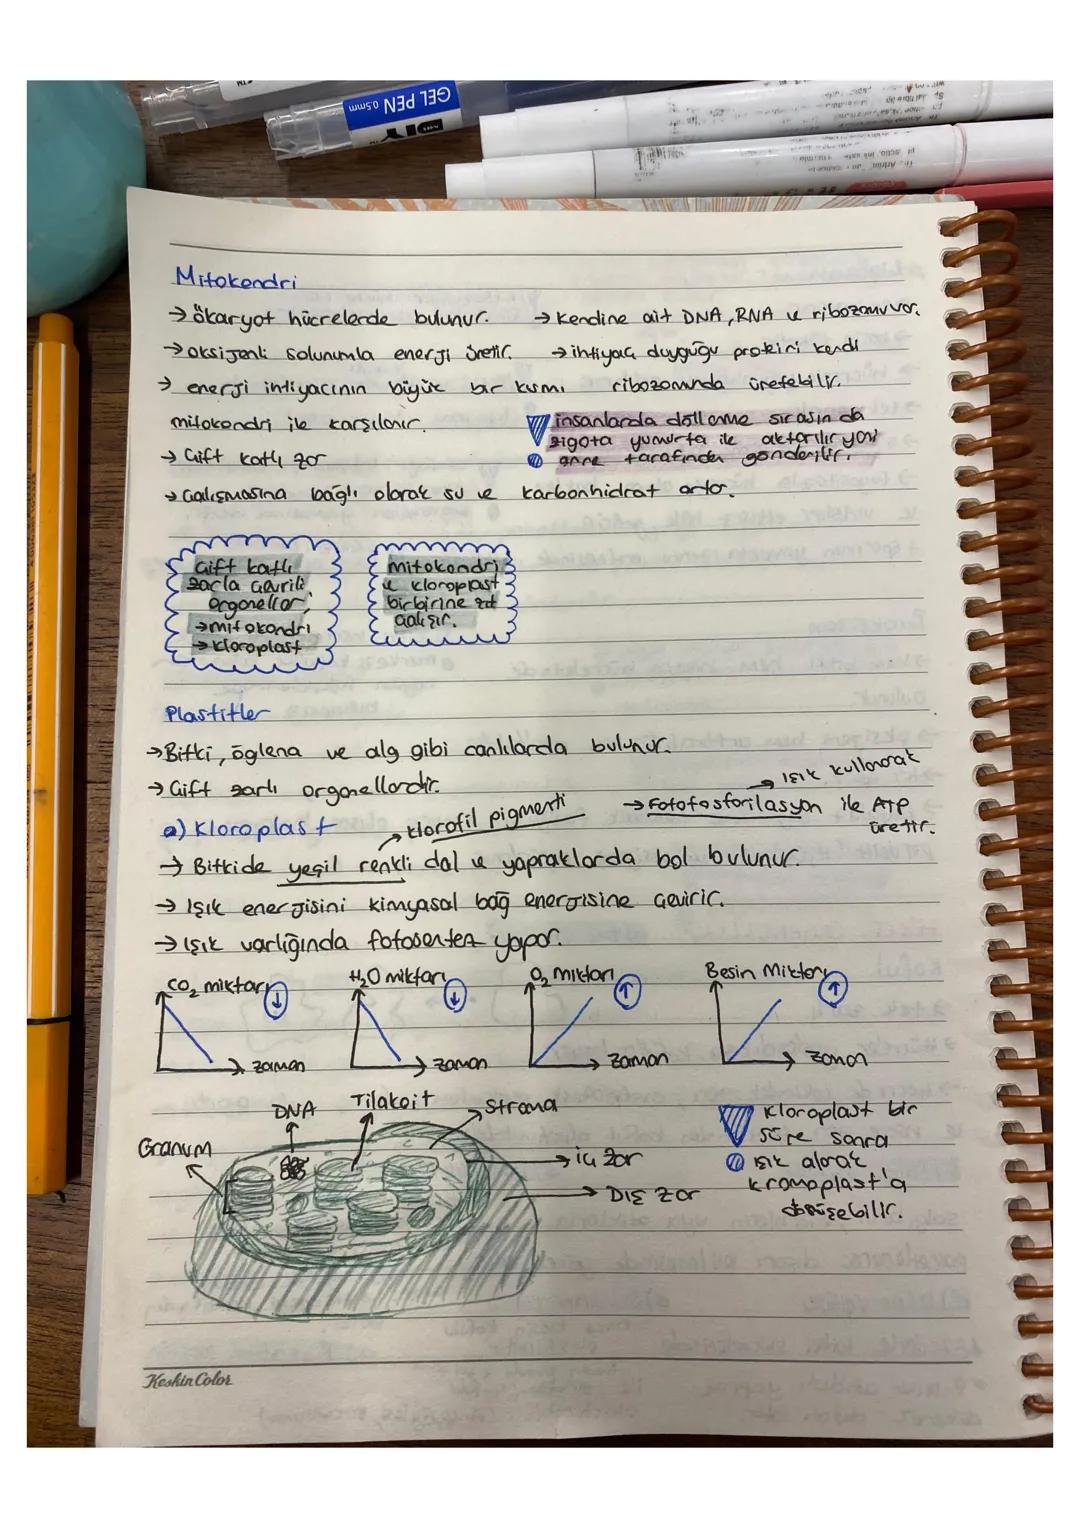 GEL PEN 0.5mm
DIY
Mitokondri
→ ökaryot hücrelerde bulunur.
→ Kendine ait DNA, RNA ve ribozomu var.
→ oksijenli solunumla enerji üretir.
→ ihtiyaç duyguğu proteini kendi
ribozomunda üretebilir.
→ enerji intiyacının büyük bir kısmı
mitokondri ile karşılanır.
insanlarda döllenme sırasında
zigota yumurta ile aktarılır yani
anne tarafından gönderilir.
→ Çift katlı zar
→ Çalışmasına bağlı olarak su ve karbonhidrat artar.
Çift katlı
zarla çevrili
organeller,
→ mitokondri
→ kloroplast
mitokondri
ve kloroplast
birbirine zıt
çalışır.
Plastitler
→ Bitki, öglena ve alg gibi canlılarda bulunur.
→ Çift zarlı organellerdir.
→ ışık kullanarak
→ Fotofosforilasyon ile ATP
üretir.
a) Kloroplast
→ klorofil pigmenti
→ Bitkide yeşil renkli dal ve yapraklarda bol bulunur.
→ Işık enerjisini kimyasal bağ enerjisine çevirir.
→ Işık varlığında fotosentez yapar.
CO₂ miktarı ↓
zaman
H₂O miktarı ↓
zaman
O₂ miktarı ↑
zaman
Besin Miktarı ↑
zaman
Granum
DNA
Tilakoit
Stroma
iç zar
Dış zar
Kloroplast bir
süre sonra
ışık alarak
kromoplast'a
dönüşebilir.
Keskin Color